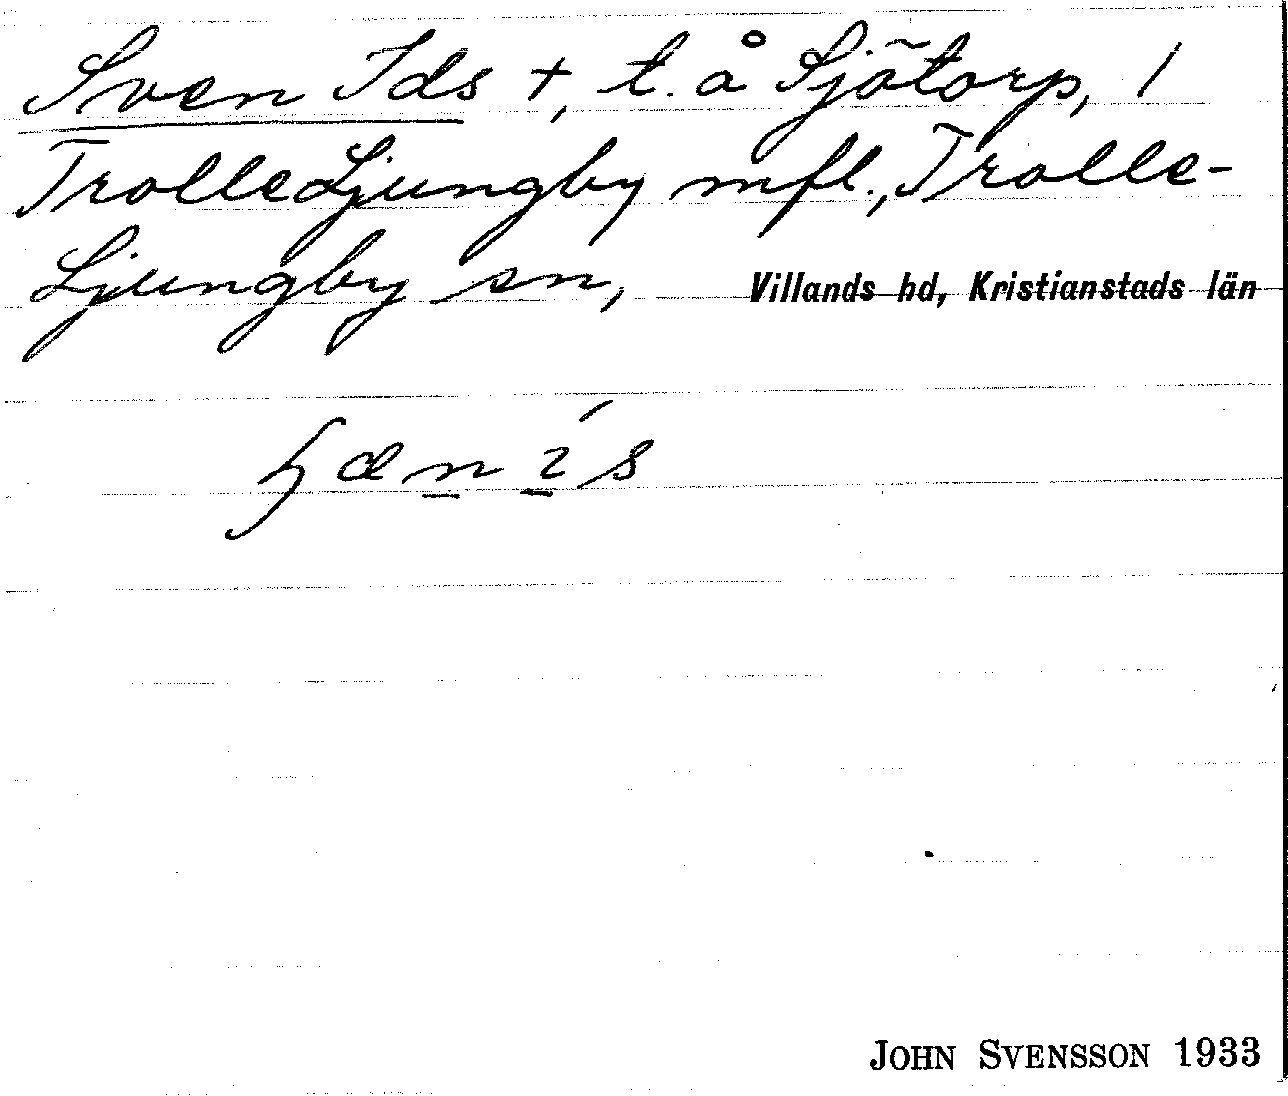 Sven Ids +, t. å Sjötorp, 1
TrolleLjungby mfl., Trolle-
Ljungby sn, Villands hd, Kristianstads län
JOHN SVENSSON 1933